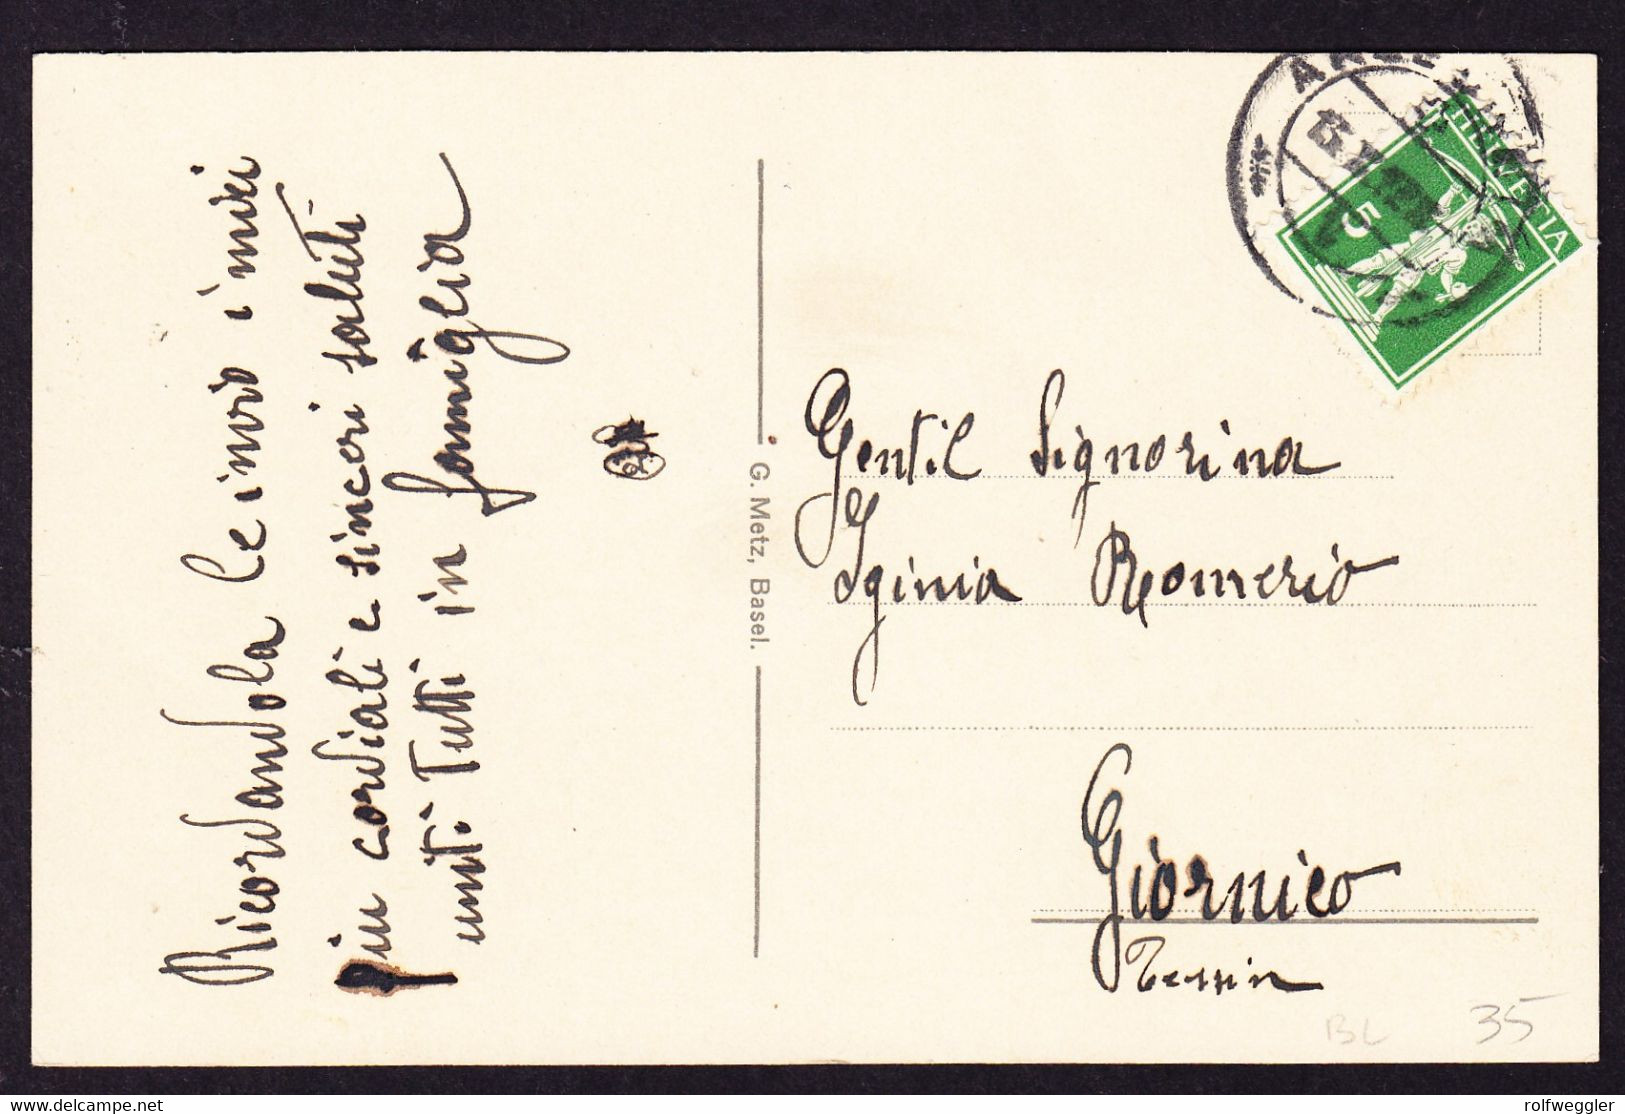 Ricordandola Le invio i miei
più cordiali e sinceri saluti
uniti Tutti in famiglia
G. Metz, Basel.
HELVETIA
5
Gentil Signorina
Iginia Romerio
Giornico
Tessin
BL 35
rolfweggler